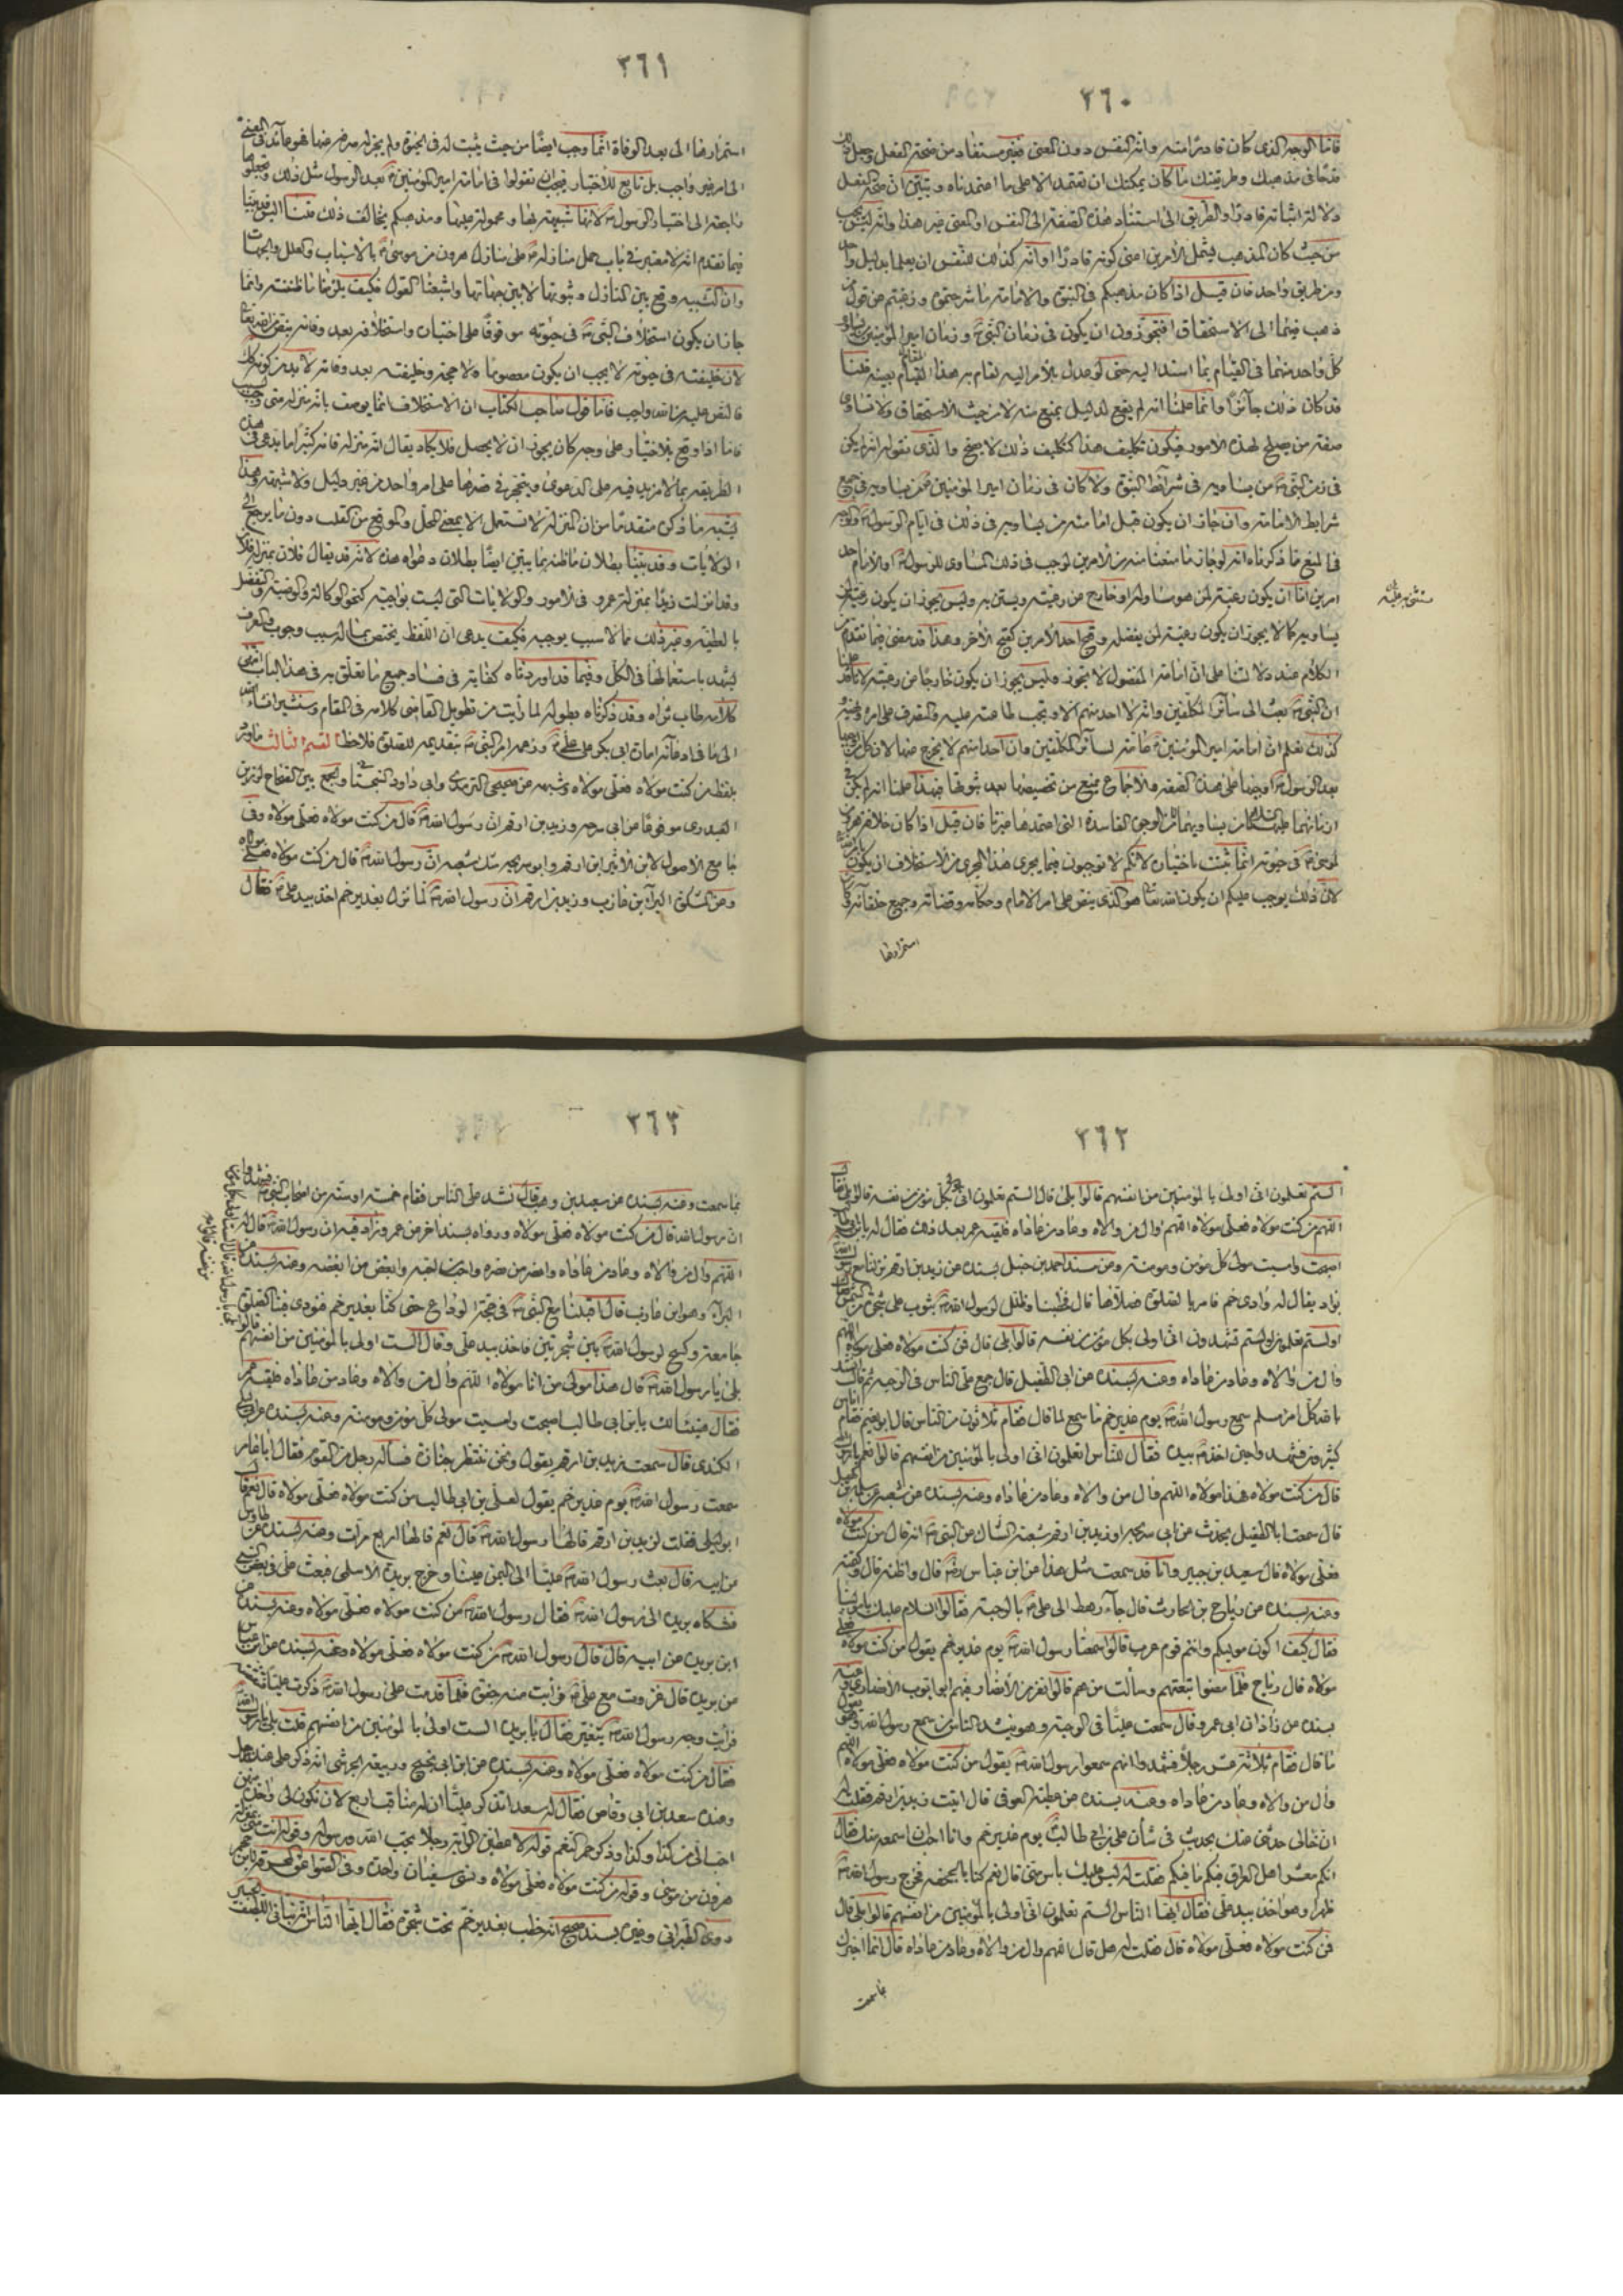 ٣٦٠
فاما الوجه الذى كان قادرا منه وانه النفس دون المعنى فغير مستفاد من صحة الفعل
قدحا فى مذهبك وطريقتك ما كان يمكنك ان تعتمد الا على ما اعتمدناه وتبين ان صحة الفعل
دلالة اثباته قادرا والطريق الى استناد هذه الصفة الى النفس او المعنى غير هذا وانه ليس يجب
من حيث كان المذهب فيمثل الأمرين اعنى كونه قادرا او انه كذلك للنفس ان يعلما بدليل واحد
ومن طريق واحد فان قيل اذا كان مذهبكم فى النبوة والامامة ما شرحتموه ورغبتم عن قول من
ذهب فيهما الى الاستحقاق افتجوزون ان يكون فى زمان النبى وزمان امير المؤمنين
كل واحد منهما فى القيام بما اسند اليه حتى لو عدل بالأمر اليه لقام به هذا المقام بعينه قلنا
قد كان ذلك جائزا وانما علمنا انه لم يقع لدليل يمنع منه لا من حيث الاستحقاق ولا تساوى
صفته من يصلح لهذه الامور فيكون تكليف هذا كتكليف ذلك لا يصح والذى نقوله انه لم يكن
فى زمن النبى من يساويه فى شرائط النبوة ولا كان فى زمان امير المؤمنين من يساويه فى جميع
شرايط الامامة وان جاز ان يكون قبل امامته من يساويه فى ذلك فى ايام الرسول
فالمنع مما ذكرناه انه لو جاز ما منعنا منه من الامرين لوجب فى ذلك المساوى للرسول او الامام احد
امرين اما ان يكون رعية لمن هو مساو له او خارج عن رعيته ويستن به وليس يجوز ان يكون رعية لمن
يساويه كما لا يجوز ان يكون رعية لمن يفضله وقبح احد الأمرين كقبح الأخر وهذا قد مضى فيما تقدم من
الكلام عند دلالتنا على ان امامة المفضول لا تجوز وليس يجوز ان يكون خارجا من رعيته لانا قد علمنا
ان النبى بعث الى سائر المكلفين وانه لا احد منهم الا وتجب طاعته عليه والتصرف على امره ونهيه
كذلك نعلم ان امامة امير المؤمنين عامة لسائر المكلفين وان احدا منهم لا يخرج عنها لان كل من اوجبها
بعد الرسول اوجبها على هذه الصفة والاجماع يمنع من تخصيصها بعد ثبوتها فبهذا علمنا انه لم يكن فى
فان قيل اذا كان خلافة هرون
لموسى فى حيوته انما ثبتت باختياره لانكم لا توجبون فيما يجرى هذا المجرى من الاستخلاف ان يكون
لان ذلك يوجب عليكم ان يكون الله تعالى هو الذى ينص على امراء الامام وحكامه وقضاته وجميع خلفائه
استمرارها
٣٦١
استمرارها الى بعد الوفاة انما وجب ايضا من حيث يثبت له فى الحيوة ولم يجز له
الى امر غير واجب بل تابع للاختيار فيجب ان تقولوا فى امامة امير المؤمنين بعد الرسول مثل ذلك وتجعلوها
راجعة الى اختيار الرسول لانها شبيهة بها ومحمولة عليها ومذهبكم يخالف ذلك قلنا
فيما تقدم انه لا معتبر فى باب حمل منازله على منازل هرون من موسى بالاسباب والعلل والجهات
وان التشبيه وقع بين المنازل وثبوتها لا بين جهاتها واشبعنا القول فكيف يلزمنا ما ظننته وانما
جاز ان يكون استخلاف النبى فى حيوته موقوفا على اختياره واستخلافه بعد وفاته بنص الله تعالى
لان خليفته فى حيوته لا يجب ان يكون معصوما ولا حجة وخليفته بعد وفاته لا بد من كونه كذلك
فالنص عليه من الله واجب فاما قول صاحب الكتاب ان الاستخلاف انما يوصف بانه منزلة متى وجب
فاما اذا وقع بالاختيار على وجه كان يجوز ان لا يحصل فلا يكاد يقال انه منزلة فانه كثيرا ما يدعى فى هذه
الطريقة بما لا مزيد فيه على الدعوى ويتحجر فى ضدها على امر واحد من غير دليل ولا شبهة وهذا
يشبه ما ذكره متقدما من ان المنزلة لا تستعمل الا بمعنى المحل والموقع من القلب دون ما يرجع الى
الولايات وقد بيّنا بطلان ما ظنه بما يبين ايضا بطلان دعواه هذه لانه قد يقال فلان بمنزلة فلان
وقد انزلت زيدا بمنزلة عمرو فى الامور والولايات التى ليست بواجبة كنحو الوكالة والوصية والتفضل
بالعطية وغير ذلك مما لا سبب يوجبه فكيف يدعى ان اللفظ يختص بما له سبب وجوب والعرف
يشهد باستعمالها فى الكل وفيما قد اوردناه كفاية فى فساد جميع ما تعلق به فى هذا الباب انتهى
كلامه طاب ثراه وقد ذكرناه بطوله لما رأيت من تطويل القاضى كلامه فى المقام وسنشير انشاء الله
الى ما فى ادعائه امامة ابى بكر على على وزعمه امر النبى بتقديمه للصلوة فلاحظ القسم الثالث ما ورد
بلفظ من كنت مولاه فعلى مولاه وشبهه عن صحيحى الترمذى وابى داود السجستانى والجمع بين الصحاح لرزين
العبدرى موفوقا عن ابى سرحه وزيد بن ارقم ان رسول الله قال من كنت مولاه فعلى مولاه وفى
جامع الاصول لابن الاثير ابن ارقم وابو سرحه شك شعبه ان رسول الله قال من كنت مولاه فعلى مولاه
وعن المشكوة البراء بن عازب وزيد بن ارقم ان رسول الله لما نزل بغدير خم اخذ بيد على فقال
٣٦٢
الستم تعلمون انى اولى بالمؤمنين من انفسهم قالوا بلى قال الستم تعلمون انى اولى بكل مؤمن من نفسه قالوا بلى فقال
اللهم من كنت مولاه فعلى مولاه اللهم وال من والاه وعاد من عاداه فلقيه عمر بعد ذلك فقال له
اصبحت وامسيت مولى كل مؤمن ومومنة ومن مسند احمد بن حنبل بسنده عن زيد بن ارقم نزلنا مع رسول الله
بواد يقال له وادى خم فامر بالصلوة فصلاها قال فخطبنا وظلل لرسول الله بثوب على شجرة من الشمس
اولستم تعلمون اولستم تشهدون انى اولى بكل مؤمن من نفسه قالوا بلى قال فمن كنت مولاه فعلى مولاه اللهم
وال من والاه وعاد من عاداه وعنه بسنده عن ابى الطفيل قال جمع على الناس فى الرحبة ثم قال انشد
بالله كل امرء مسلم سمع رسول الله يوم غدير خم ما سمع لما قام فقام ثلاثون من الناس قال ابو نعيم فقام اناس
كثير فشهدوا حين اخذه بيده فقال للناس اتعلمون انى اولى بالمؤمنين من انفسهم قالوا نعم يا رسول الله
قال من كنت مولاه فهذا مولاه اللهم وال من والاه وعاد من عاداه وعنه بسنده عن شعبه عن سلمة بن كهيل
قال سمعت ابا الطفيل يحدث عن ابى سريحه او زيد بن ارقم شعبة الشاك عن النبى انه قال من كنت مولاه
فعلى مولاه قال سعيد بن جبير وانا قد سمعت مثل هذا عن ابن عباس رضه قال واظنه قال وكتمته
وعنه بسنده عن رياح بن الحارث قال جاء رهط الى على بالرحبة فقالوا السلام عليك يا مولينا
فقال كيف اكون موليكم وانتم قوم عرب قالوا سمعنا رسول الله يوم غدير خم يقول من كنت مولاه فعلى
مولاه قال رياح فلما مضوا تبعتهم وسألت من هم قالوا نفر من الأنصار فيهم ابو ايوب الأنصارى وعنه
بسنده عن زاذان ابى عمرو قال سمعت عليا فى الرحبة وهو ينشد الناس من سمع رسول الله وهو يقول
ما قال فقام ثلاثة عشر رجلا فشهدوا انهم سمعوا رسول الله يقول من كنت مولاه فعلى مولاه اللهم
وال من والاه وعاد من عاداه وعنه بسنده عن عطية العوفى قال اتيت زيد بن ارقم فقلت له
ان خالى حدثنى عنك بحديث فى شأن على بن ابى طالب يوم غدير خم وانا احب ان اسمعه منك فقال
انكم معشر اهل العراق فيكم ما فيكم فقلت له ليس عليك باس منى قال نعم كنا بالجحفه فخرج رسول الله
ظهرا وهو اخذ بيد على فقال ايها الناس الستم تعلمون انى اولى بالمؤمنين من انفسهم قالوا بلى قال
فمن كنت مولاه فعلى مولاه قال فقلت له هل قال اللهم وال من والاه وعاد من عاداه قال انما اخبرك
بما سمعت
٣٦٣
بما سمعت وعنه بسنده عن سعيد بن وهب قال نشد على الناس فقام خمسة او ستة من اصحاب النبى فشهدوا
ان رسول الله قال من كنت مولاه فعلى مولاه ورواه بسند اخر عن عمر وزاد فيه ان رسول الله قال
اللهم وال من والاه وعاد من عاداه وانصر من نصره واحب من احبه وابغض من ابغضه وعنه بسنده عن
البراء وهو ابن عازب قال اقبلنا مع النبى فى حجة الوداع حتى كنا بغدير خم فنودى فينا الصلوة
جامعة وكسح لرسول الله بين شجرتين فاخذ بيد على وقال الست اولى بالمؤمنين من انفسهم قالوا
بلى يا رسول الله قال هذا مولى من انا مولاه اللهم وال من والاه وعاد من عاداه فلقيه عمر
فقال هنيئا لك يابن ابى طالب اصبحت وامسيت مولى كل مؤمن ومومنة وعنه بسنده عن
الكندى قال سمعت زيد بن ارقم يقول ونحن ننتظر جنازة فسأله رجل من القوم فقال ابا عامر
سمعت رسول الله يوم غدير خم يقول لعلى بن ابى طالب من كنت مولاه فعلى مولاه قال نعم قال
ابو ليلى فقلت لزيد بن ارقم قالها رسول الله قال نعم قالها اربع مرات وعنه بسنده عن طاوس
عن ابيه قال بعث رسول الله عليا الى اليمن علينا وخرج بريدة الاسلمى فبعث على فى بعض السبى
فشكاه بريدة الى رسول الله فقال رسول الله من كنت مولاه فعلى مولاه وعنه بسنده عن
ابن بريدة عن ابيه قال قال رسول الله من كنت مولاه فعلى مولاه وعنه بسنده عن ابن عباس
عن بريدة قال غزوت مع على فرايت منه جفوة فلما قدمت على رسول الله ذكرت عليا فتنقصته
فرأيت وجه رسول الله يتغير فقال يا بريدة الست اولى بالمؤمنين من انفسهم قلت بلى يا رسول الله
فقال من كنت مولاه فعلى مولاه وعنه بسنده عن ابن ابى نجيح وربيعة الجرشى انه ذكر على عند رجل
وعنده سعد بن ابى وقاص فقال له سعد اتذكر عليا ان له مناقب اربع لان تكون لى واحدة منهن
احب الى من كذا وكذا وذكر حمر النعم قوله لاعطين الراية رجلا يحب الله ورسوله وقوله انت بمنزلة
هرون من موسى وقوله من كنت مولاه فعلى مولاه ونسى سفيان واحدة وفى الصواعق المحرقة لابن حجر
روى الطبرانى وغيره بسند صحيح انه خطب بغدير خم تحت شجرة فقال ايها الناس انه نبانى اللطيف الخبير